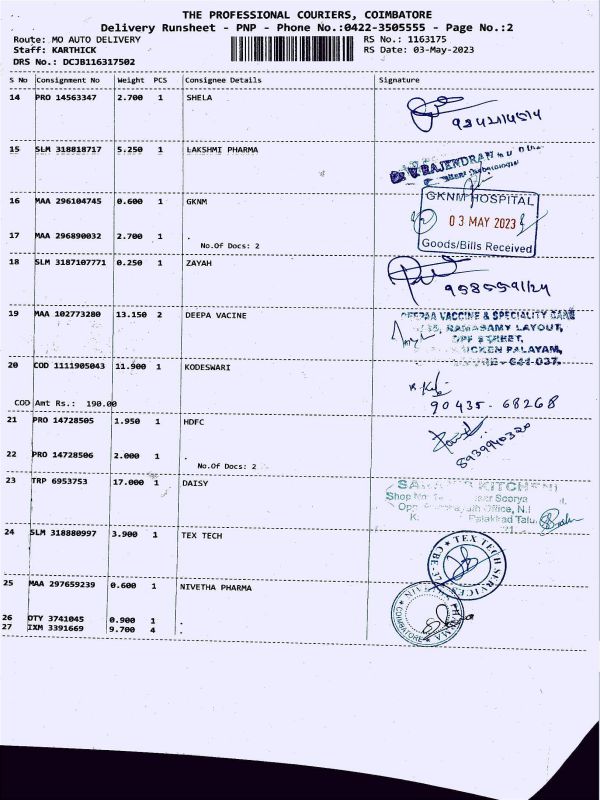 THE PROFESSIONAL COURIERS, COIMBATORE
Delivery Runsheet - PNP - Phone No.:0422-3505555 - Page No.:2
Route: MO AUTO DELIVERY RS No.: 1163175
Staff: KARTHICK RS Date: 03-May-2023
DRS No.: DCJB116317502
S No Consignment No Weight PCS Consignee Details Signature
14 PRO 14563347 2.700 1 SHELA
15 SLM 318818717 5.250 1 LAKSHMI PHARMA
RAJENDRAN
16 MAA 296104745 0.600 1 GKNM
GKNM HOSPITAL
03 MAY 2023
17 MAA 296890032 2.700 1 .
No.Of Docs: 2
Goods/Bills Received
18 SLM 3187107771 0.250 1 ZAYAH
19 MAA 102773280 13.150 2 DEEPA VACINE
DEEPAA VACCINE & SPECIALITY CARE
RAMASAMY LAYOUT,
OPP STREET,
PALAYAM,
641 037.
20 COD 1111905043 11.900 1 KODESWARI
COD Amt Rs.: 190.00
90435-68268
21 PRO 14728505 1.950 1 HDFC
8939940320
22 PRO 14728506 2.000 1 .
No.Of Docs: 2
23 TRP 6953753 17.000 1 DAISY
KITCHEN
Shop No
Office, N.I
Palakkad
24 SLM 318880997 3.900 1 TEX TECH
TEX TECH SERVICES
CBE-
25 MAA 297659239 0.600 1 NIVETHA PHARMA
PHARMA
COIMBATORE
26 DTY 3741045 0.900 1 .
27 IXM 3391669 9.700 4 .